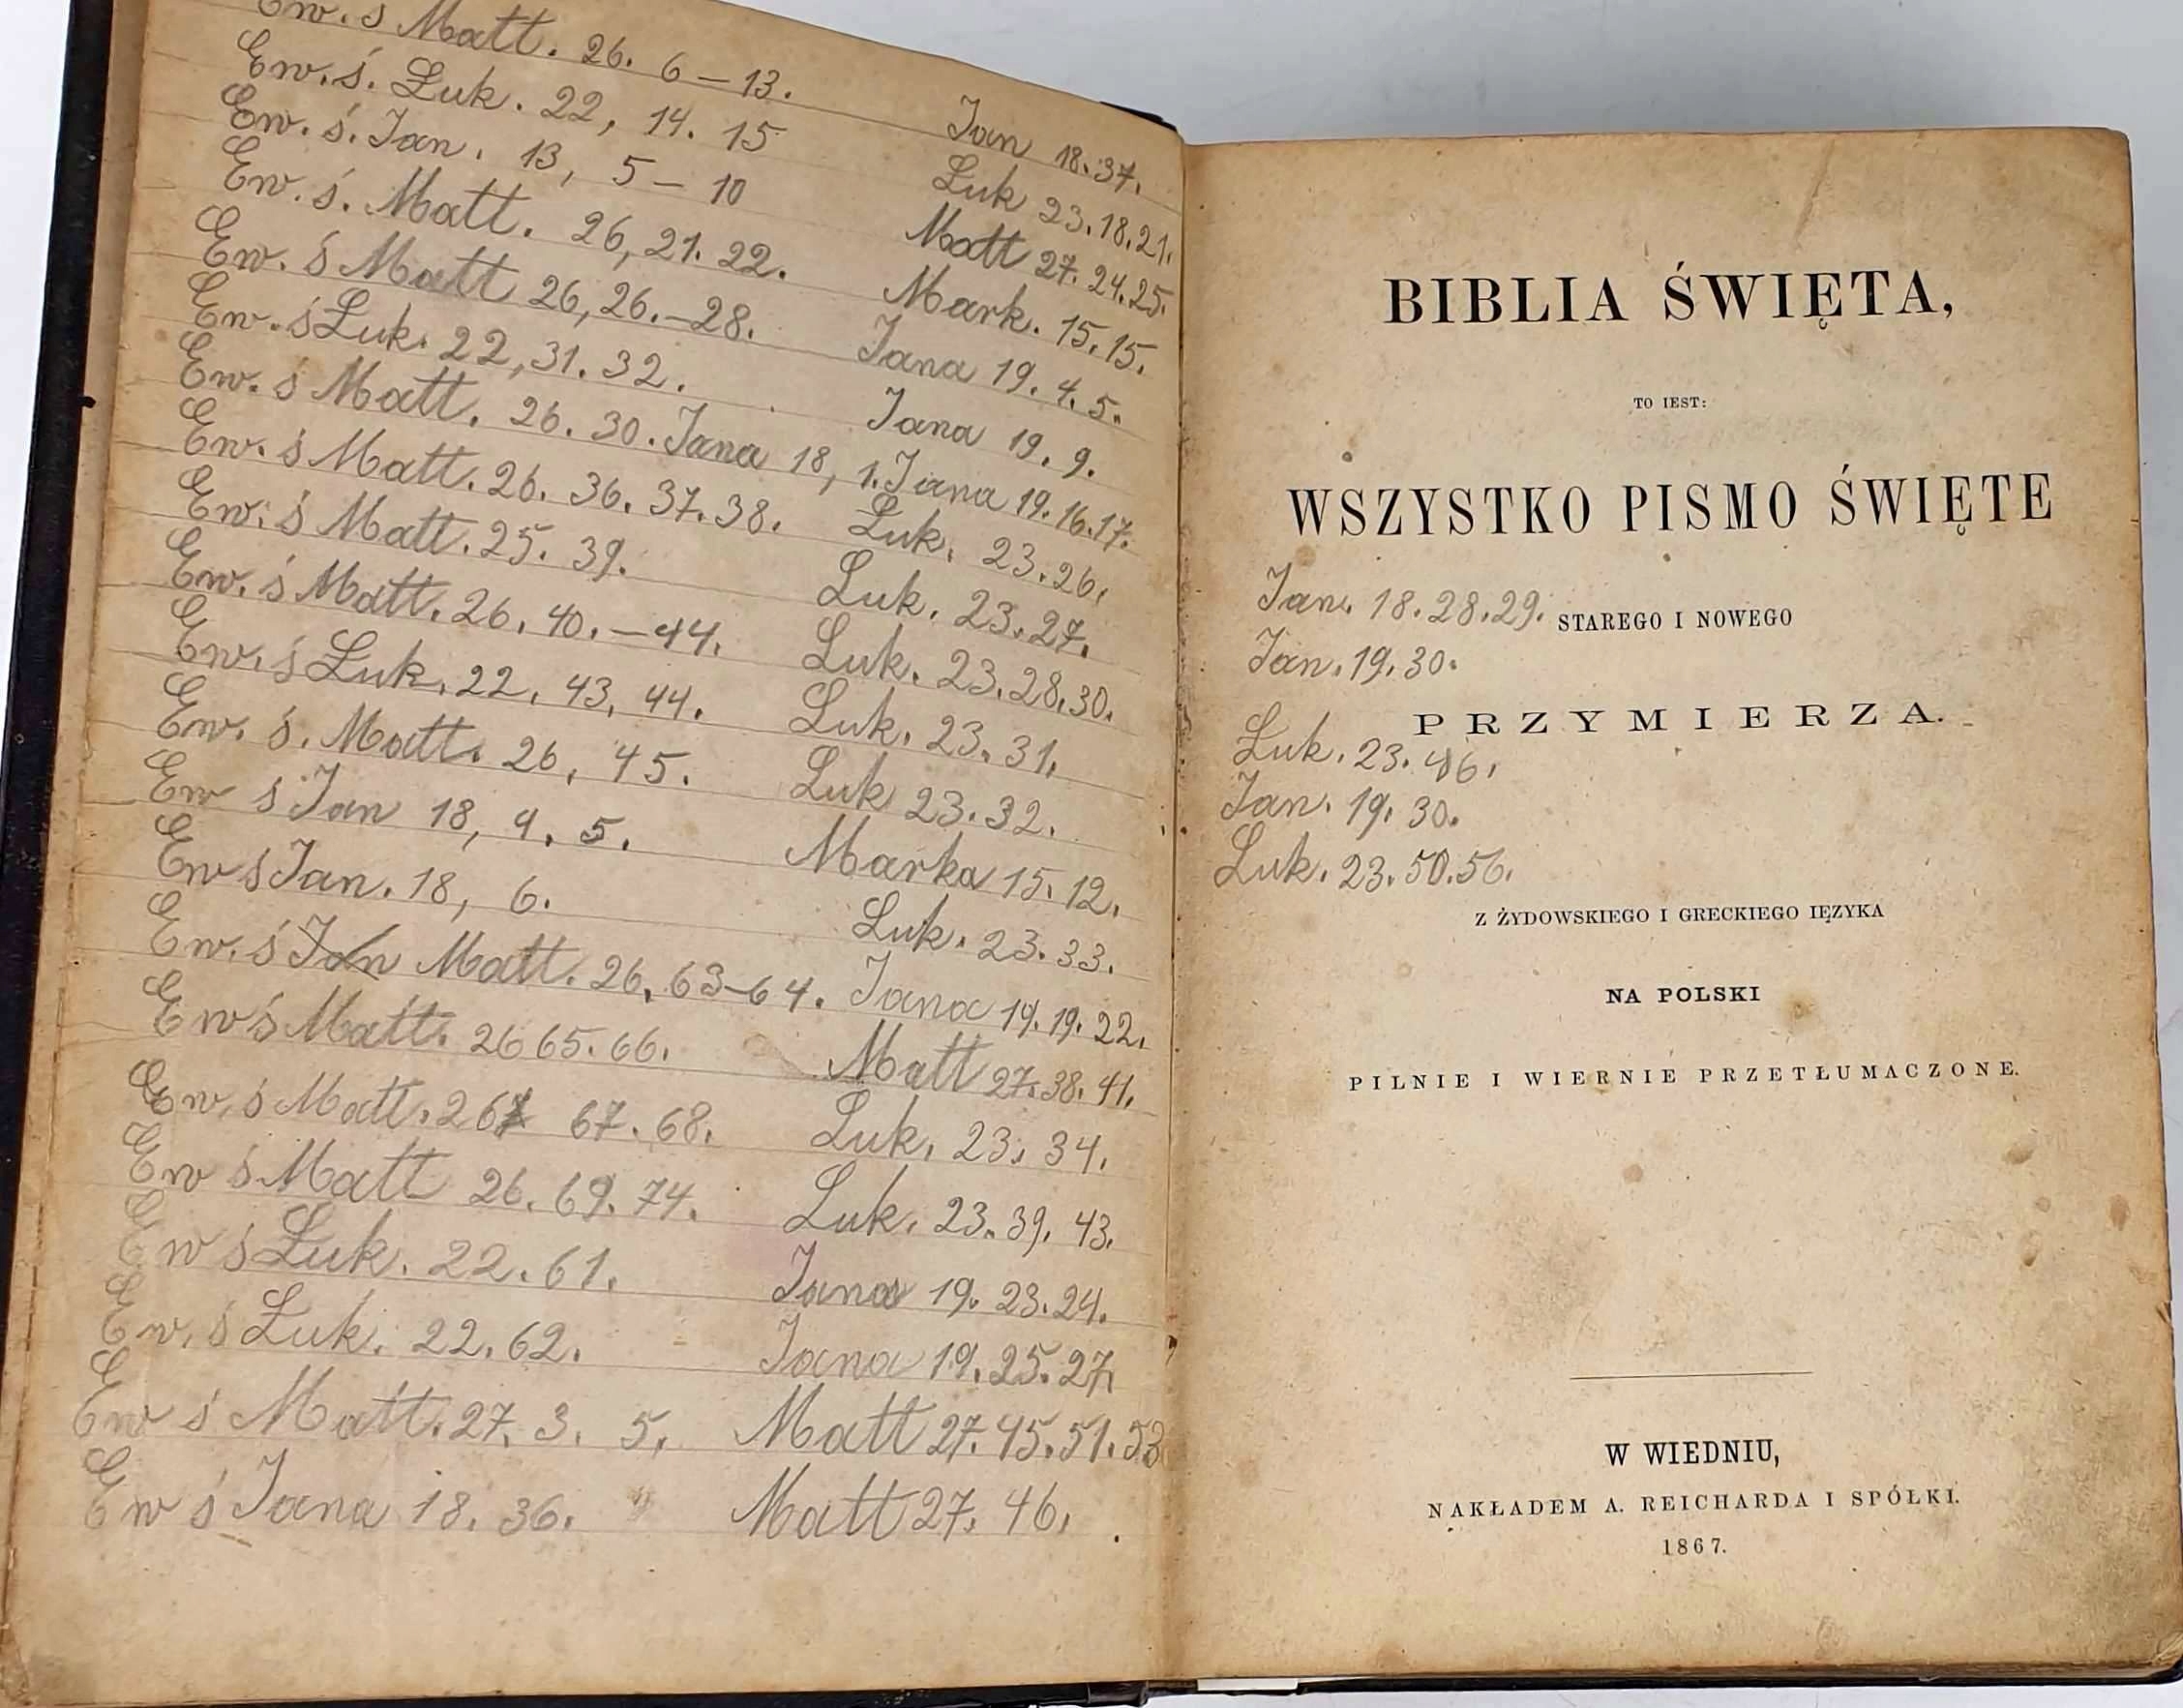 Ew. ś Matt. 26. 6 – 13.
Ew. ś. Luk. 22, 14. 15
Ew. ś. Jan. 13, 5 – 10
Ew. ś. Matt. 26, 21. 22.
Ew. ś Matt 26, 26. – 28.
Ew. ś Luk. 22, 31. 32.
Ew. ś Matt. 26. 30. Jana 18, 1.
Ew. ś Matt. 26. 36. 37. 38.
Ew. ś Matt. 25. 39.
Ew. ś Matt. 26. 40. – 44.
Ew. ś Luk. 22. 43, 44.
Ew. ś. Matt. 26, 45.
Ew ś Jan 18, 4. 5.
Ew ś Jan. 18, 6.
Ew. ś Jan Matt. 26, 63–64.
Ew ś Matt. 26 65. 66.
Ew. ś Matt. 26 67. 68.
Ew ś Matt 26. 69. 74.
Ew ś Luk. 22. 61.
Ew. ś Luk. 22. 62.
Ew ś Matt. 27. 3. 5.
Ew ś Jana 18. 36.
Jan 18. 37.
Luk 23. 18. 21.
Matt 27. 24. 25.
Mark. 15. 15.
Jana 19. 4. 5.
Jana 19. 9.
Jana 19. 16. 17.
Luk. 23. 26.
Luk. 23. 27.
Luk. 23. 28. 30.
Luk. 23. 31.
Luk 23. 32.
Marka 15. 12.
Luk. 23. 33.
Jana 19. 19. 22.
Matt 27. 38. 41.
Luk. 23. 34.
Luk. 23. 39. 43.
Jana 19. 23. 24.
Jana 19. 25. 27.
Matt 27. 45. 51. 53
Matt 27. 46.
BIBLIA ŚWIĘTA,
TO IEST:
WSZYSTKO PISMO ŚWIĘTE
Jan. 18. 28. 29.
STAREGO I NOWEGO
Jan. 19. 30.
PRZYMIERZA.
Luk. 23. 46.
Jan. 19. 30.
Luk. 23. 50. 56.
Z ŻYDOWSKIEGO I GRECKIEGO IĘZYKA
NA POLSKI
PILNIE I WIERNIE PRZETŁUMACZONE.
W WIEDNIU,
NAKŁADEM A. REICHARDA I SPÓŁKI.
1867.